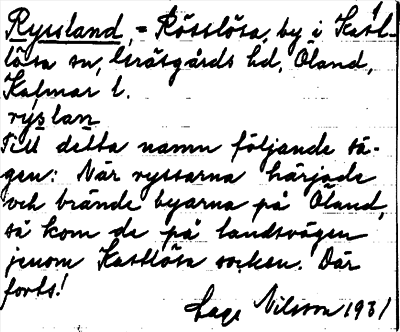 Ryssland, = Rösslösa, by i Kast-
lösa sn, Gräsgårds hd, Öland,
Kalmar l.
ryslan
Till detta namn följande sä-
gen: När ryssarna härjade
och brände byarna på Öland,
så kom de på landsvägen
jenom Kastlösa socken. Där
forts!
Lage Nilsson 1931